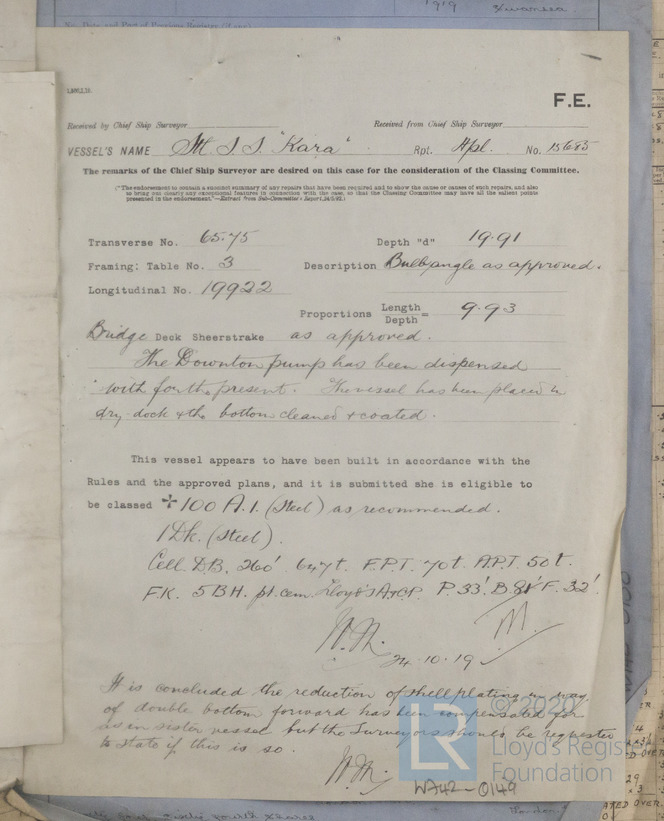 1919 Swansea
F.E.
Received by Chief Ship Surveyor
Received from Chief Ship Surveyor
VESSEL'S NAME S.S. "Kara" Rpt. Hpl. No. 15685
The remarks of the Chief Ship Surveyor are desired on this case for the consideration of the Classing Committee.
("The endorsement to contain a succinct summary of any repairs that have been required and to show the cause or causes of such repairs, and also
so bring out clearly any exceptional features in connection with the case, so that the Classing Committee may have all the salient points
presented in the endorsement."—Extract from Sub-Committee's Report,
Transverse No. 65.75 Depth "d" 19.91
Framing: Table No. 3 Description Bulb angle as approved.
Longitudinal No. 19922
Proportions Length / Depth = 9.93
Bridge Deck Sheerstrake as approved.
The Downton pump has been dispensed
with for the present. The vessel has been placed in
dry dock & the bottom cleaned & coated.
This vessel appears to have been built in accordance with the
Rules and the approved plans, and it is submitted she is eligible to
be classed ✠ 100 A.1. (Steel) as recommended.
1 Dk. (Steel).
Cell D.B. 260' 647t. F.P.T. 70t. A.P.T. 50t.
F.K. 5 B.H. pt. cem. Lloyd's A&CP. P. 33' B. 81' F. 32'
24.10.19
It is concluded the reduction of shell plating in way
of double bottom forward has been compensated for
as in sister vessel but the Surveyors should be requested
to state if this is so.
© 2020
LR
Lloyd's Register
Foundation
WA42-0149